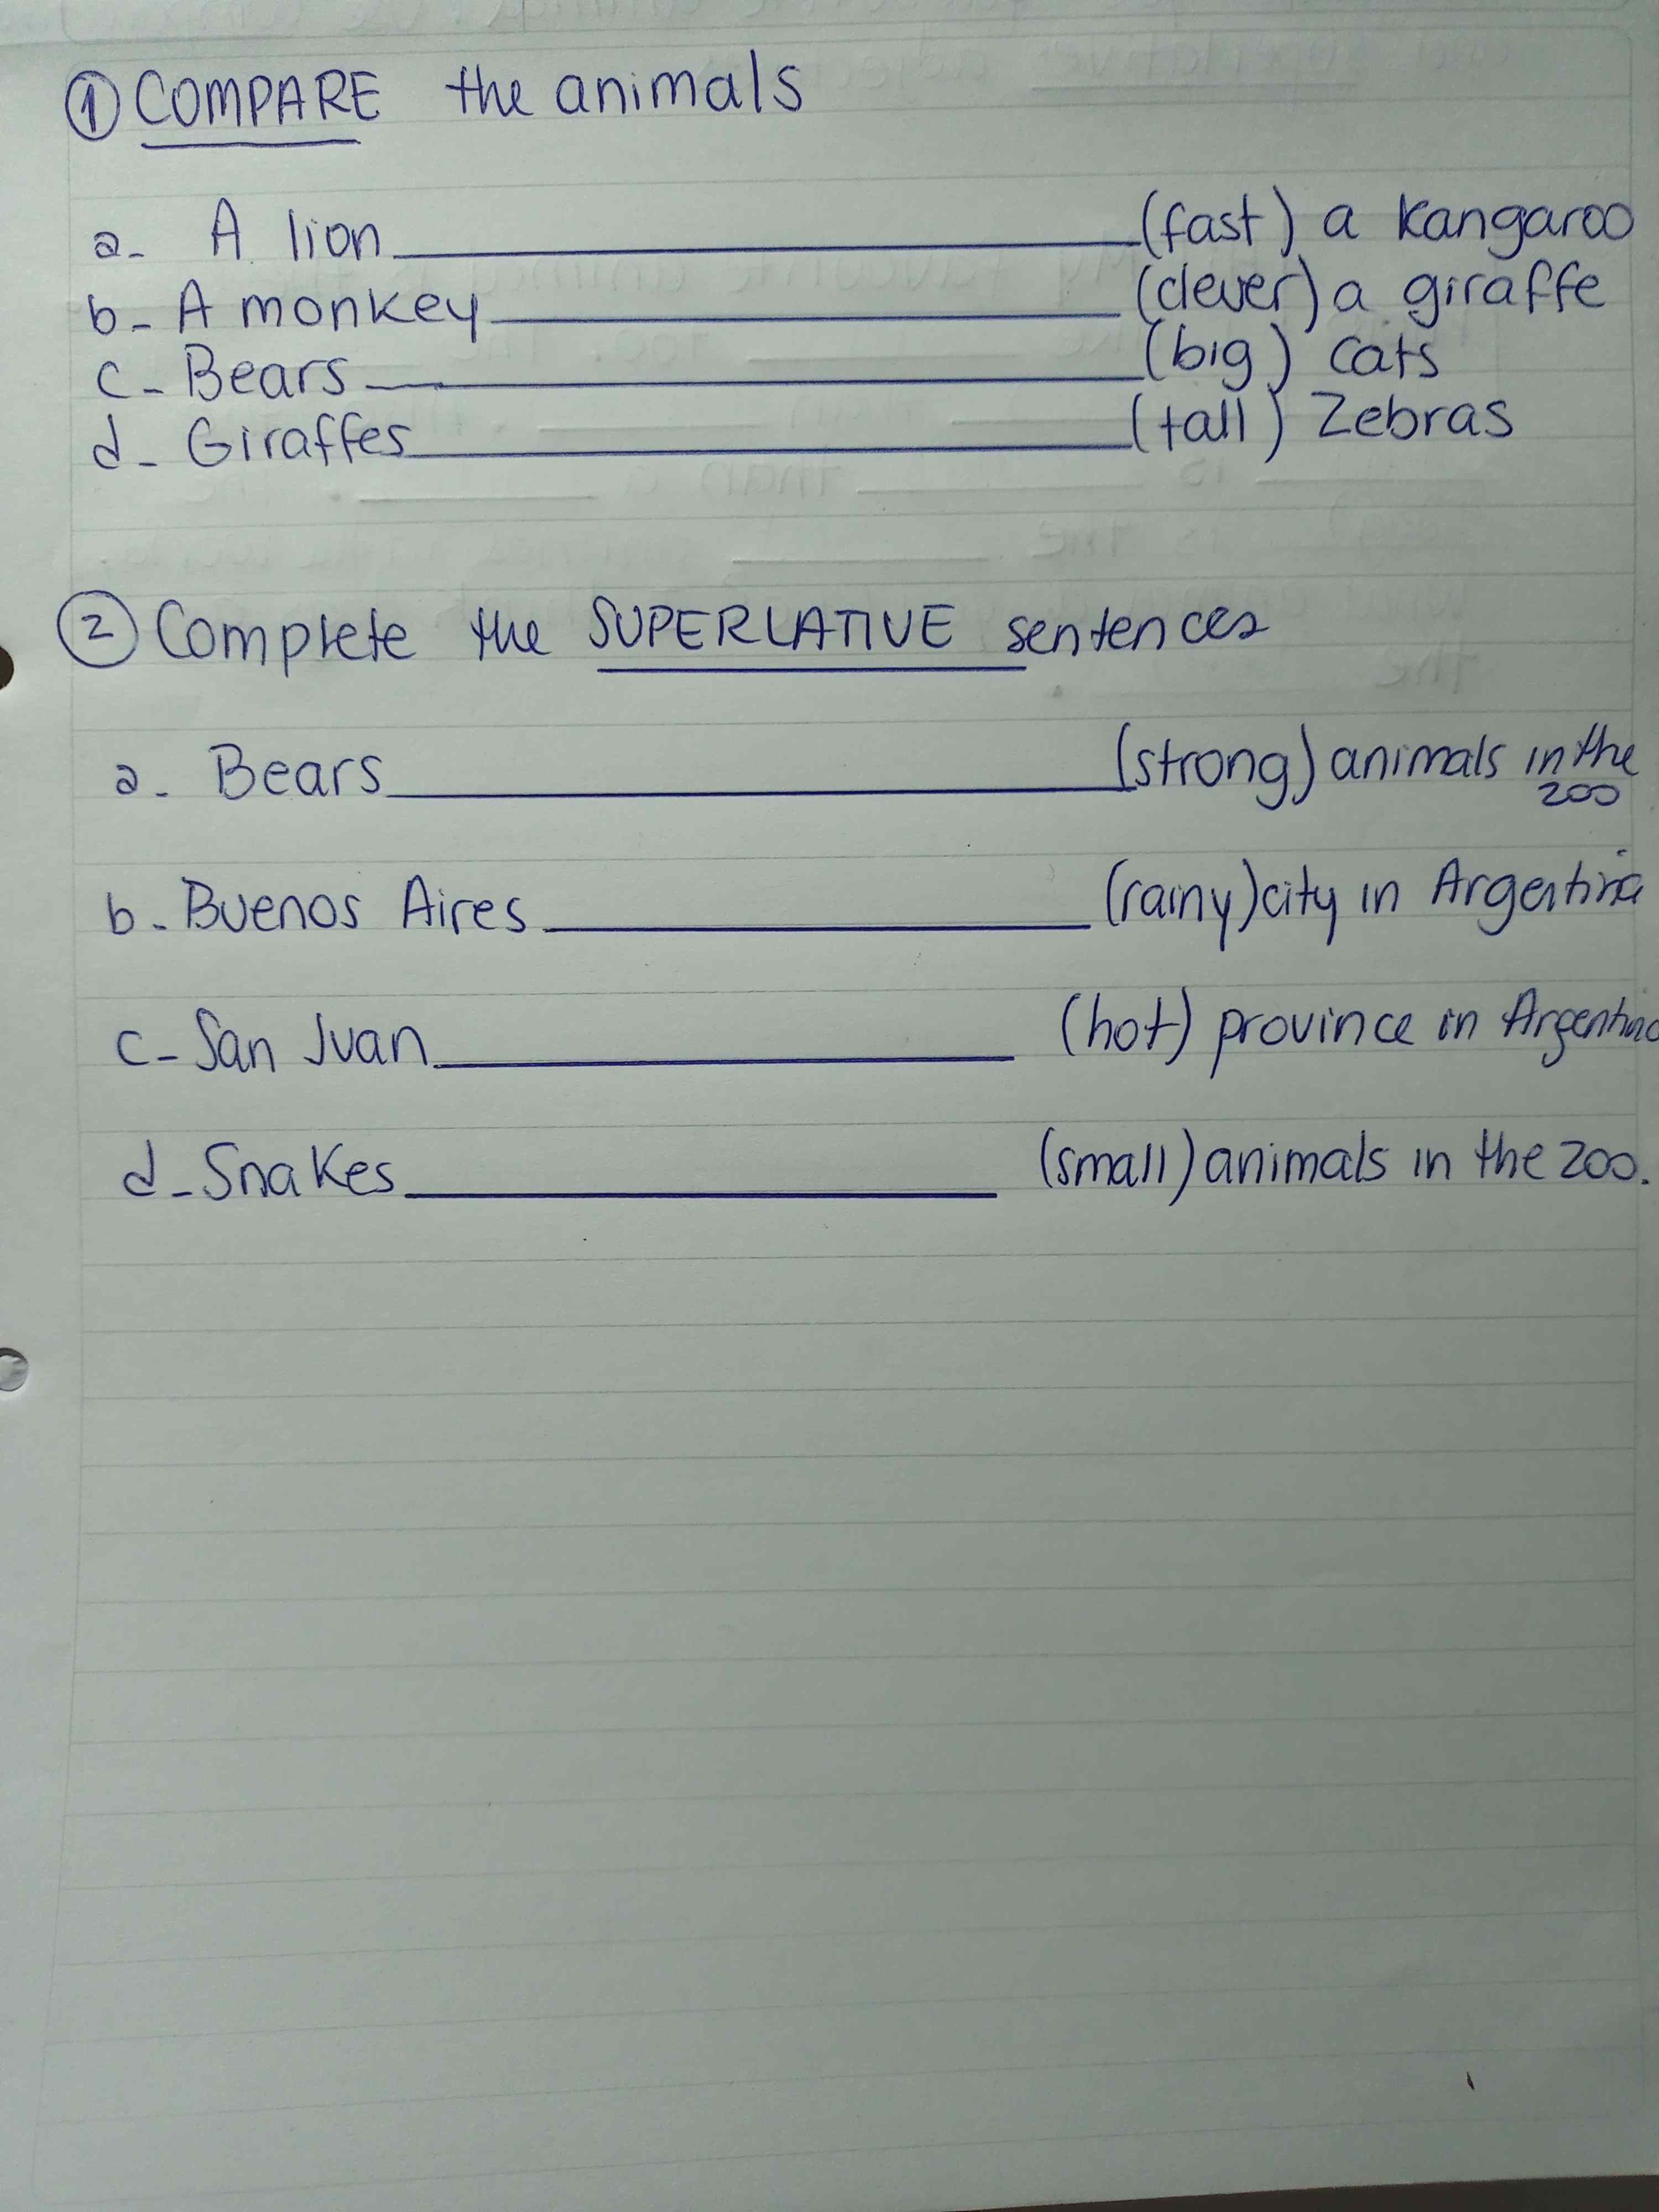 ① COMPARE the animals
a- A lion ____________ (fast) a kangaroo
b- A monkey ____________ (clever) a giraffe
c- Bears ____________ (big) cats
d- Giraffes ____________ (tall) Zebras
② Complete the SUPERLATIVE sentences
a. Bears ____________ (strong) animals in the
zoo
b. Buenos Aires ____________ (rainy) city in Argentina
c- San Juan ____________ (hot) province in Argentina
d- Snakes ____________ (small) animals in the zoo.